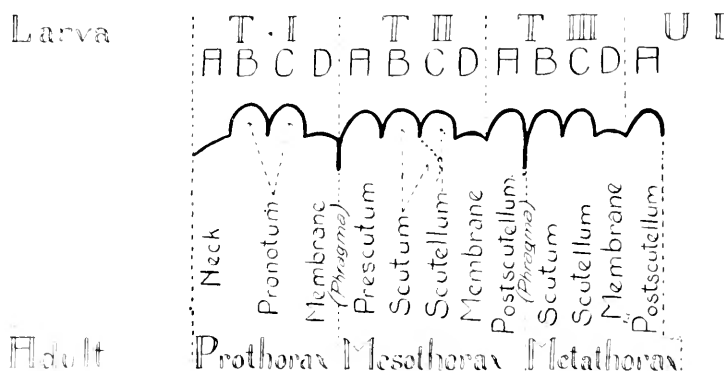 Larva T. I T II T III U I
A B C D A B C D A B C D A
Neck
Pronotum
Membrane
(Phragma)
Prescutum
Scutum
Scutellum
Membrane
Postscutellum
(Phragma)
Scutum
Scutellum
Membrane
Postscutellum
Adult Prothorax Mesothorax Metathorax